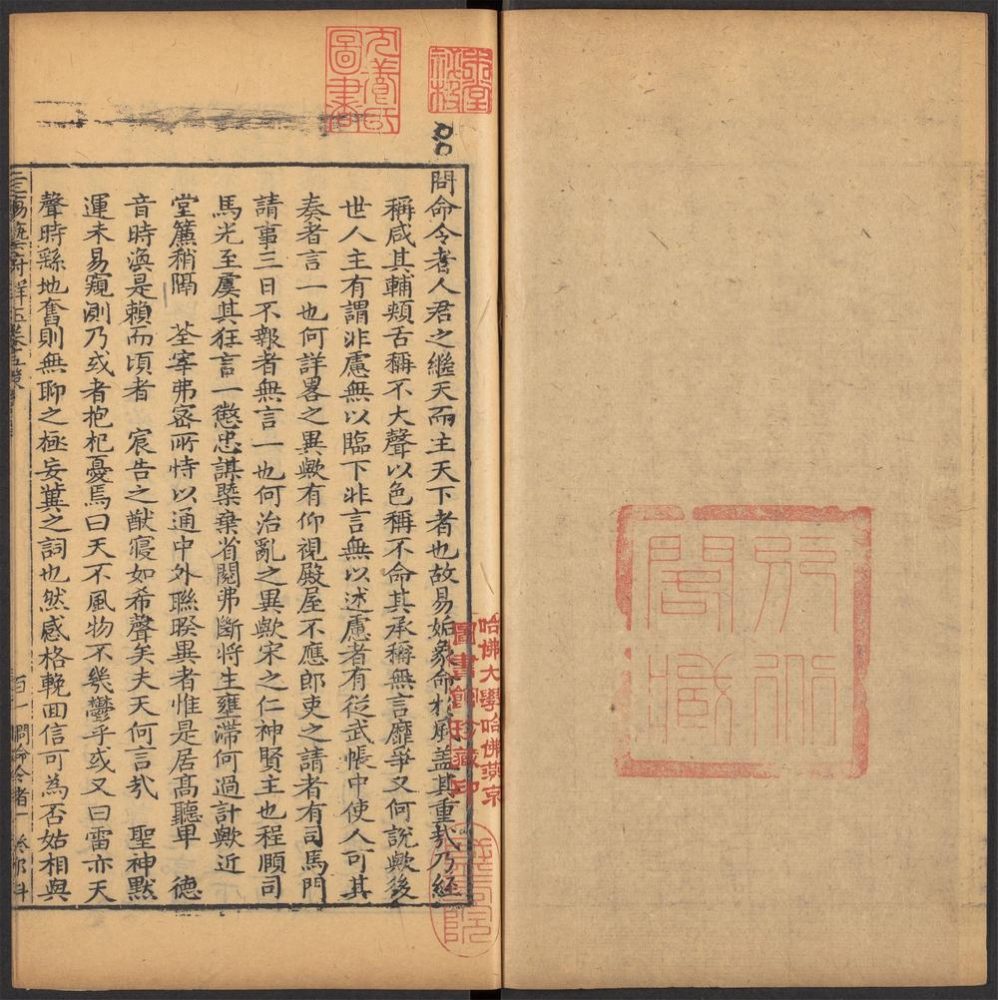 問命令者人君之繼天而主天下者也故易姤象命於風蓋其重㢤乃經
稱咸其輔頰舌稱不大聲以色稱不命其承稱無言靡爭又何說歟後
世人主有謂非慮無以臨下非言無以述慮者有從武帳中使人可其
奏者言一也何詳畧之異歟有仰視殿屋不應郎吏之請者有司馬門
請事三日不報者無言一也何治亂之異歟宋之仁神賢主也程頤司
馬光至虞其狂言一懲忠謀槩棄省閱弗斷將生壅滯何過計歟近
堂簾稍隔 荃宰弗密所恃以通中外聯暌異者惟是居髙聽卑 德
音時渙是賴而頃者 宸告之猷寖如希聲矣夫天何言㢤 聖神黙
運未易窺測乃或者抱杞憂焉曰天不風物不幾鬱乎或又曰雷亦天
聲時繇地奮則無聊之極妄冀之詞也然感格輓回信可為否姑相與
百一 問命令者一
圖書
哈佛大學哈佛燕京
圖書館珍藏印
閣藏